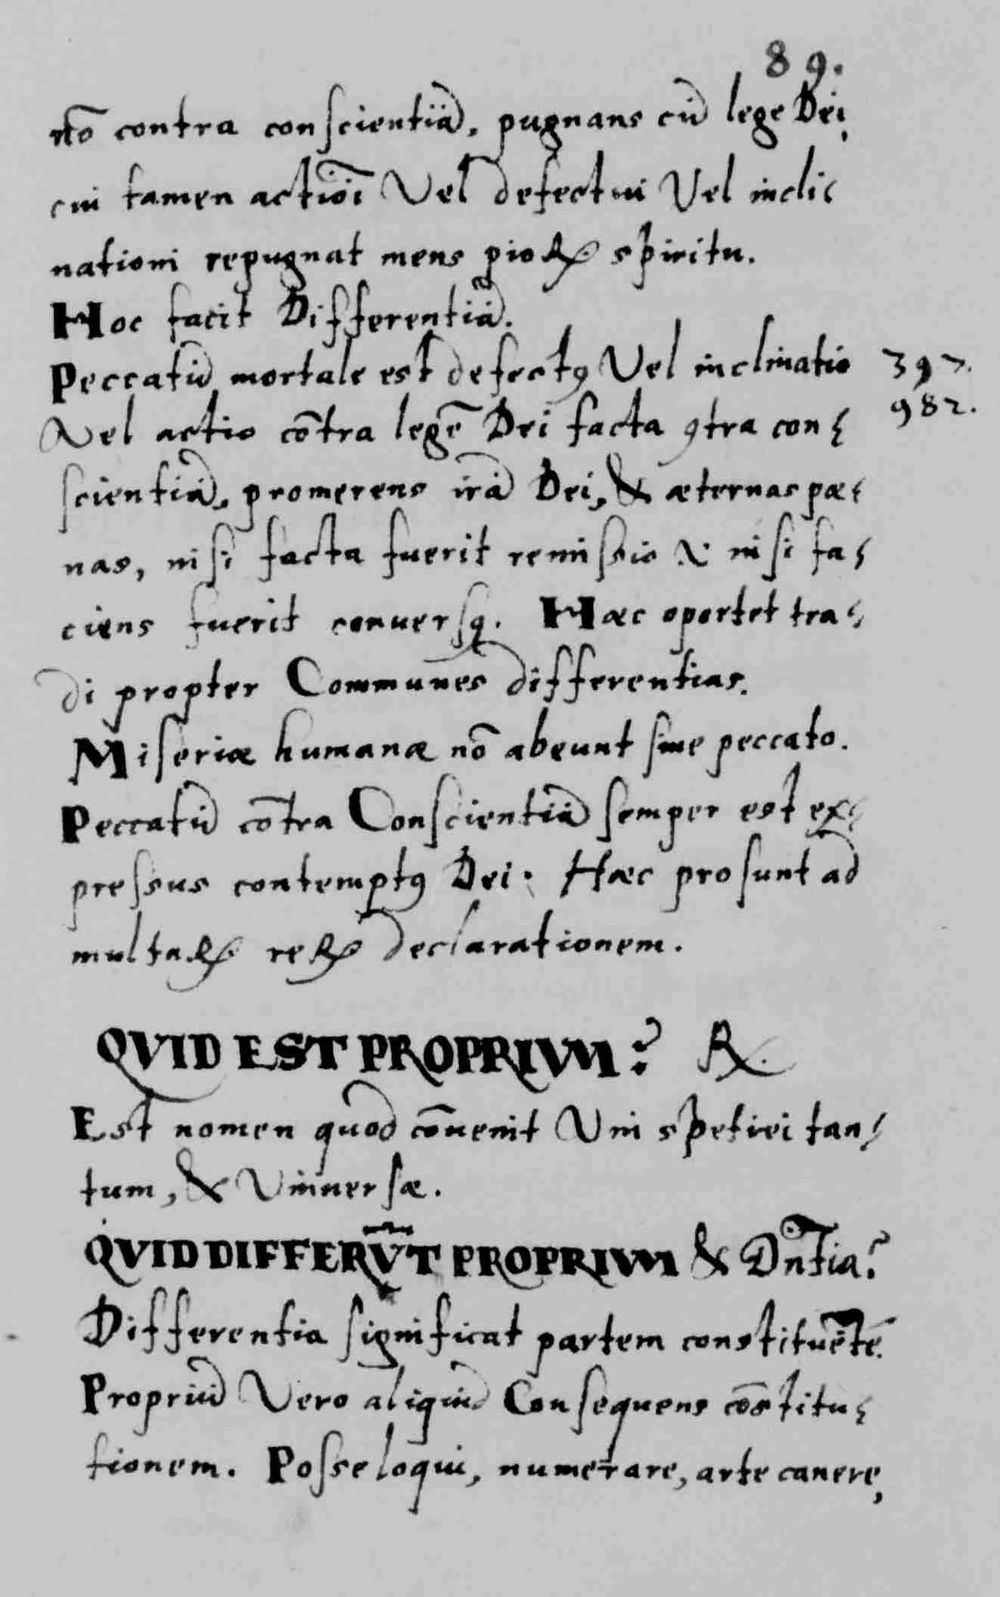 89.
nō contra conſcientiā, pugnans cū lege Dei,
cui tamen actiōi Vel defectui Vel incli-
nationi repugnat mens pioꝝ spiritu.
Hoc facit Differentiā.
Peccatū mortale est defectꝰ Vel inclinatio 397.
Vel actio cōtra legē Dei facta ꝯtra con- 982.
ſcientiā, promerens irā Dei, & æternas pœ-
nas, niſi facta fuerit remiſsio & niſi fa-
ciens fuerit conuerſꝰ. Hæc oportet tra-
di propter Communes differentias.
Miſeriæ humanæ nō abeunt ſine peccato.
Peccatū cōtra Conſcientiā ſemper est ex-
preſsus contemptꝰ Dei. Hæc proſunt ad
multaꝝ reꝝ declarationem.
QVID EST PROPRIVM? ℞.
Est nomen quod cōuenit Vni spetiei tan-
tum, & Vniuerſæ.
QVID DIFFERV̄T PROPRIVM & Dn̄tia?
Differentia ſignificat partem constituētē.
Propriū Vero aliquid Conſequens cōstitu-
tionem. Poſse loqui, numerare, arte canere,